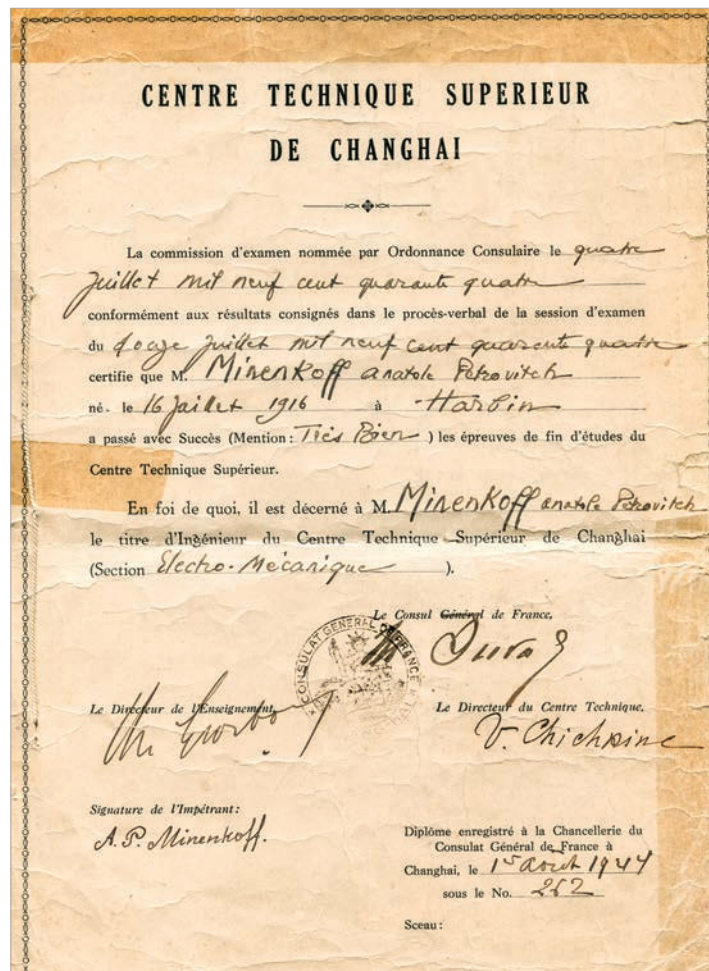 CENTRE TECHNIQUE SUPERIEUR
DE CHANGHAI
La commission d'examen nommée par Ordonnance Consulaire le quatre
juillet mil neuf cent quarante quatre
conformément aux résultats consignés dans le procès-verbal de la session d'examen
du douze juillet mil neuf cent quarante quatre
certifie que M. Minenkoff anatole Petrovitch
né. le 16 juillet 1916 à Harbin
a passé avec Succès (Mention: Très Bien) les épreuves de fin d'études du
Centre Technique Supérieur.
En foi de quoi, il est décerné à M. Minenkoff anatole Petrovitch
le titre d'Ingénieur du Centre Technique Supérieur de Changhai
(Section Electro-Mécanique).
Le Consul Général de France,
CONSULAT GENERAL DE FRANCE
Le Directeur de l'Enseignement,
Le Directeur du Centre Technique,
Signature de l'Impétrant:
A. P. Minenkoff.
Diplôme enregistré à la Chancellerie du
Consulat Général de France à
Changhai, le 1er août 1944
sous le No. 262
Sceau: